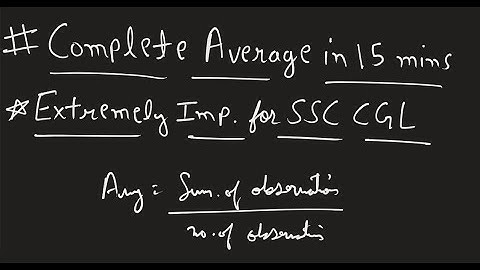 # Complete Average in 15 mins
☆ Extremely Imp. for SSC CGL
Avg = Sum. of observation
no. of observatis